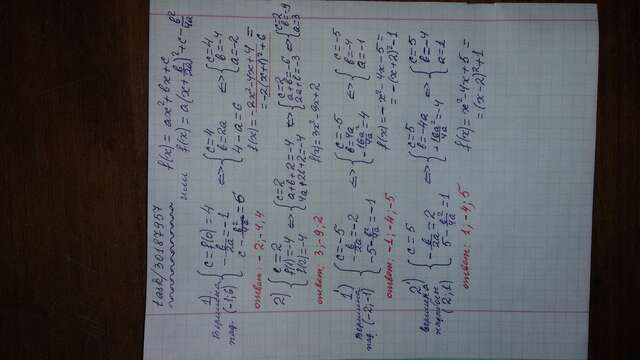 task/30187957
f(x) = ax² + bx + c
или f(x) = a(x + b/2a)² + c - b²/4a
1) Вершина пар. (-1; 6)
{ c = f(0) = 4
-b/2a = -1
c - b²/4a = 6
⇔ { c = 4
b = 2a
4 - a = 6
⇔ { c = 4
b = -4
a = -2
f(x) = -2x² - 4x + 4 =
= -2(x+1)² + 6
ответ: -2; -4; 4
2) { c = 2
f(1) = -4
f(2) = -4
⇔ { c = 2
a + b + 2 = -4
4a + 2b + 2 = -4
⇔ { c = 2
a + b = -6
2a + b = -3
⇔ { c = 2
b = -9
a = 3
f(x) = 3x² - 9x + 2
ответ: 3; -9; 2
1) Вершина пар. (-2; -1)
{ c = -5
-b/2a = -2
-5 - b²/4a = -1
⇔ { c = -5
b = 4a
-16a²/4a = 4
⇔ { c = -5
b = -4
a = -1
f(x) = -x² - 4x - 5 =
= -(x+2)² - 1
ответ: -1; -4; -5
2) вершина параболы (2; 1)
{ c = 5
-b/2a = 2
5 - b²/4a = 1
⇔ { c = 5
b = -4a
-16a²/4a = -4
⇔ { c = 5
b = -4
a = 1
f(x) = x² - 4x + 5 =
= (x-2)² + 1
ответ: 1; -4; 5